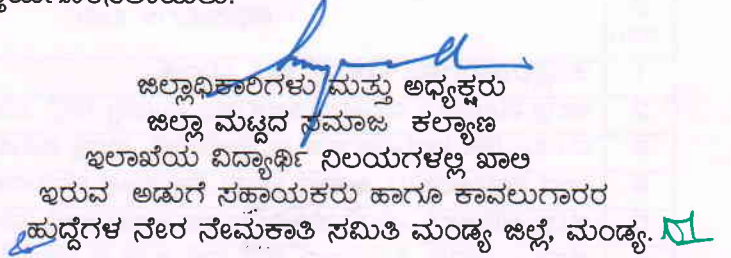 ಜಿಲ್ಲಾಧಿಕಾರಿಗಳು ಮತ್ತು ಅಧ್ಯಕ್ಷರು
ಜಿಲ್ಲಾ ಮಟ್ಟದ ಸಮಾಜ ಕಲ್ಯಾಣ
ಇಲಾಖೆಯ ವಿದ್ಯಾರ್ಥಿ ನಿಲಯಗಳಲ್ಲಿ ಖಾಲಿ
ಇರುವ ಅಡುಗೆ ಸಹಾಯಕರು ಹಾಗೂ ಕಾವಲುಗಾರರ
ಹುದ್ದೆಗಳ ನೇರ ನೇಮಕಾತಿ ಸಮಿತಿ ಮಂಡ್ಯ ಜಿಲ್ಲೆ, ಮಂಡ್ಯ.